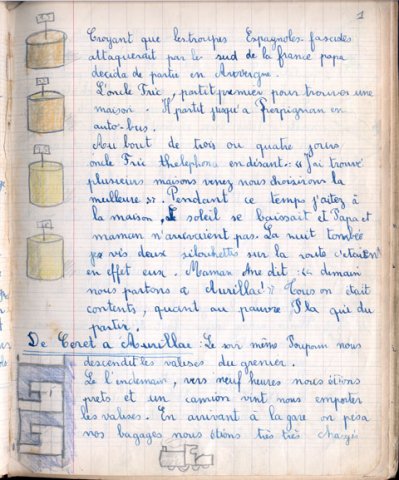 1
Croyant que les troupes Espagnoles fascistes
attaquerait par le sud de la france papa
décida de partir en Auvergne.
L'oncle Fric, partit premier pour trouver une
maison. Il partit jusqu'à Perpignan en
auto-bus.
Au bout de trois ou quatre jours
oncle Fric thelephona en disant: « J'ai trouvé
plusieurs maisons venez nous choisirons la
meilleure ». Pendant ce temps j'aitez à
la maison, le soleil se baissait et Papa et
maman n'arrivaient pas. La nuit tombée
je vis deux silouhettes sur la route c'etaient
en effet eux. Maman me dit: « demain
nous partons a Aurillac! » Tous on était
contents, quant au pauvre Pla qui du
partir.
De Ceret a Aurillac: Le soir même Poupoun nous
descendit les valises du grenier.
Le l'endemain, vers neuf heures nous étions
prets et un camion vint nous emporter
les valises. En arrivant à la gare on pesa
nos bagages nous étions très très chargés